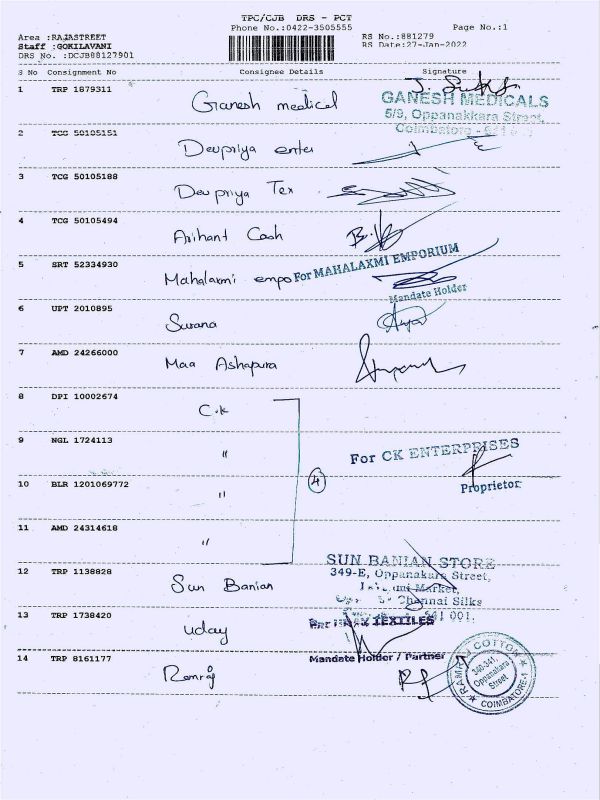 TPC/CJB DRS - PCT
Phone No.:0422-3505555
Page No.:1
Area :RAJASTREET
Staff :GOKILAVANI
DRS No. :DCJB88127901
RS No.:881279
RS Date:27-Jan-2022
S No Consignment No Consignee Details Signature
1 TRP 1879311 Ganesh medical
GANESH MEDICALS
5/9, Oppanakkara Street,
Coimbatore -
2 TCG 50105151 Devpriya enter
3 TCG 50105188 Devpriya Tex
4 TCG 50105494 Arihant Cash
5 SRT 52334930 Mahalaxmi empo
For MAHALAXMI EMPORIUM
Mandate Holder
6 UPT 2010895 Surana
7 AMD 24266000 Maa Ashapura
8 DPI 10002674 C.K
9 NGL 1724113 "
For CK ENTERPRISES
Proprietor
10 BLR 1201069772 "
4
11 AMD 24314618 "
12 TRP 1138828 Sun Banian
SUN BANIAN STORE
349-E, Oppanakara Street,
Market,
Chennai Silks
641 001.
13 TRP 1738420 Uday
TEXTILES
Mandate Holder / Partner
14 TRP 8161177 Ramraj
RAMRAJ COTTON
340-341,
Oppanakara
Street
COIMBATORE-1